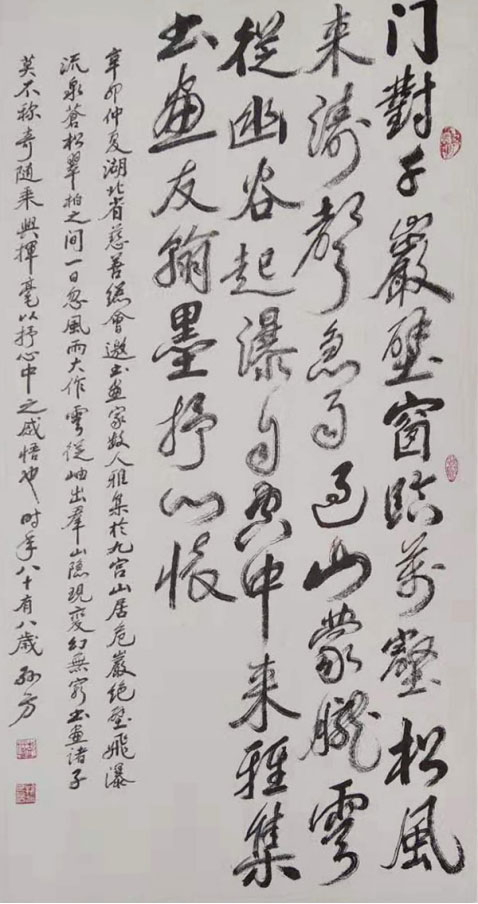 门對千巖壁窗临萬壑松風
来濤聲急雨過山蒙朧雲
從幽谷起瀑自空中来雅集
书畫友翰墨抒心懷
辛卯仲夏湖北省慈善總會邀书畫家數人雅集於九宫山居危巖絶壁飛瀑
流泉蒼松翠柏之间一日忽風雨大作雲從岫出羣山隐現變幻無窮书畫诸子
莫不称奇随乘興揮毫以抒心中之感悟也时年八十有八歲孙方